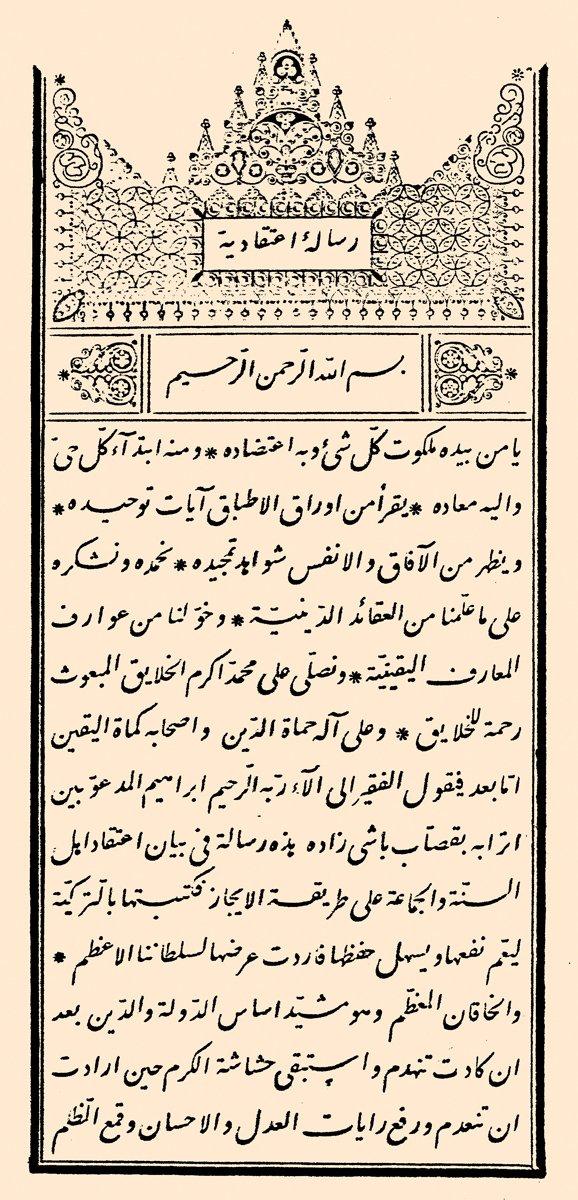 رسالهٔ اعتقادية
بسم الله الرّحمن الرّحيم
يا من بيده ملكوت كلّ شئ وبه اعتضاده * ومنه ابتدآء كلّ حىّ
واليه معاده * يقرأ من اوراق الاطباق آيات توحيده *
وينظر من الآفاق والانفس شواهد تمجيده * نحمده ونشكره
على ما علّمنا من العقائد الدّينيّة * وخوّلنا من عوارف
المعارف اليقينيّة * ونصلّى على محمّد اكرم الخلايق المبعوث
رحمة للخلايق * وعلى آله حماة الدّين واصحابه كماة اليقين
امّا بعد فيقول الفقير الى آلآء ربّه الرّحيم ابراهيم المدعوّ بين
اترابه بقصّاب باشى زاده هذه رسالة فى بيان اعتقاد اهل
السنّة والجماعة على طريقة الايجاز فكتبتها بالتّركيّة
ليعّم نفعها ويسهل حفظها فاردت عرضها لسلطاننا الاعظم *
والخاقان المعظّم وهو مشيّد اساس الدّولة والدّين بعد
ان كادت تنهدم واستبقى حشاشة الكرم حين ارادت
ان تنعدم ورفع رايات العدل والاحسان وقمع الظّلم